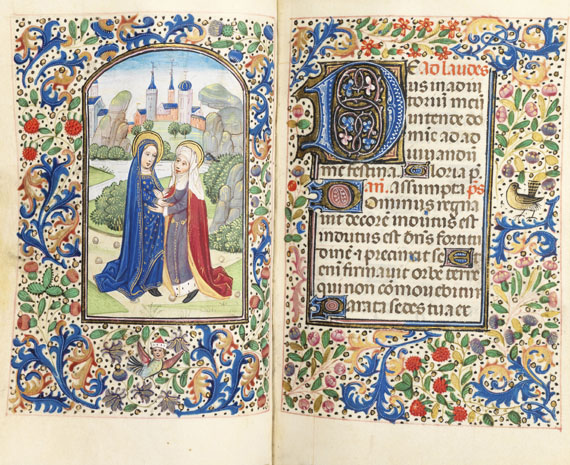 E Ad laudes
us in adiu
toriu mei
intende do
mie ad ad
iuuandu
me festina. Gloria p.
an. assumpta ps
Dominus regna
uit decore indutus est
indutus est dns fortitu
dine et precinxit se
teni firmauit orbe terre
qui non comouebitur
Parata sedes tua ex